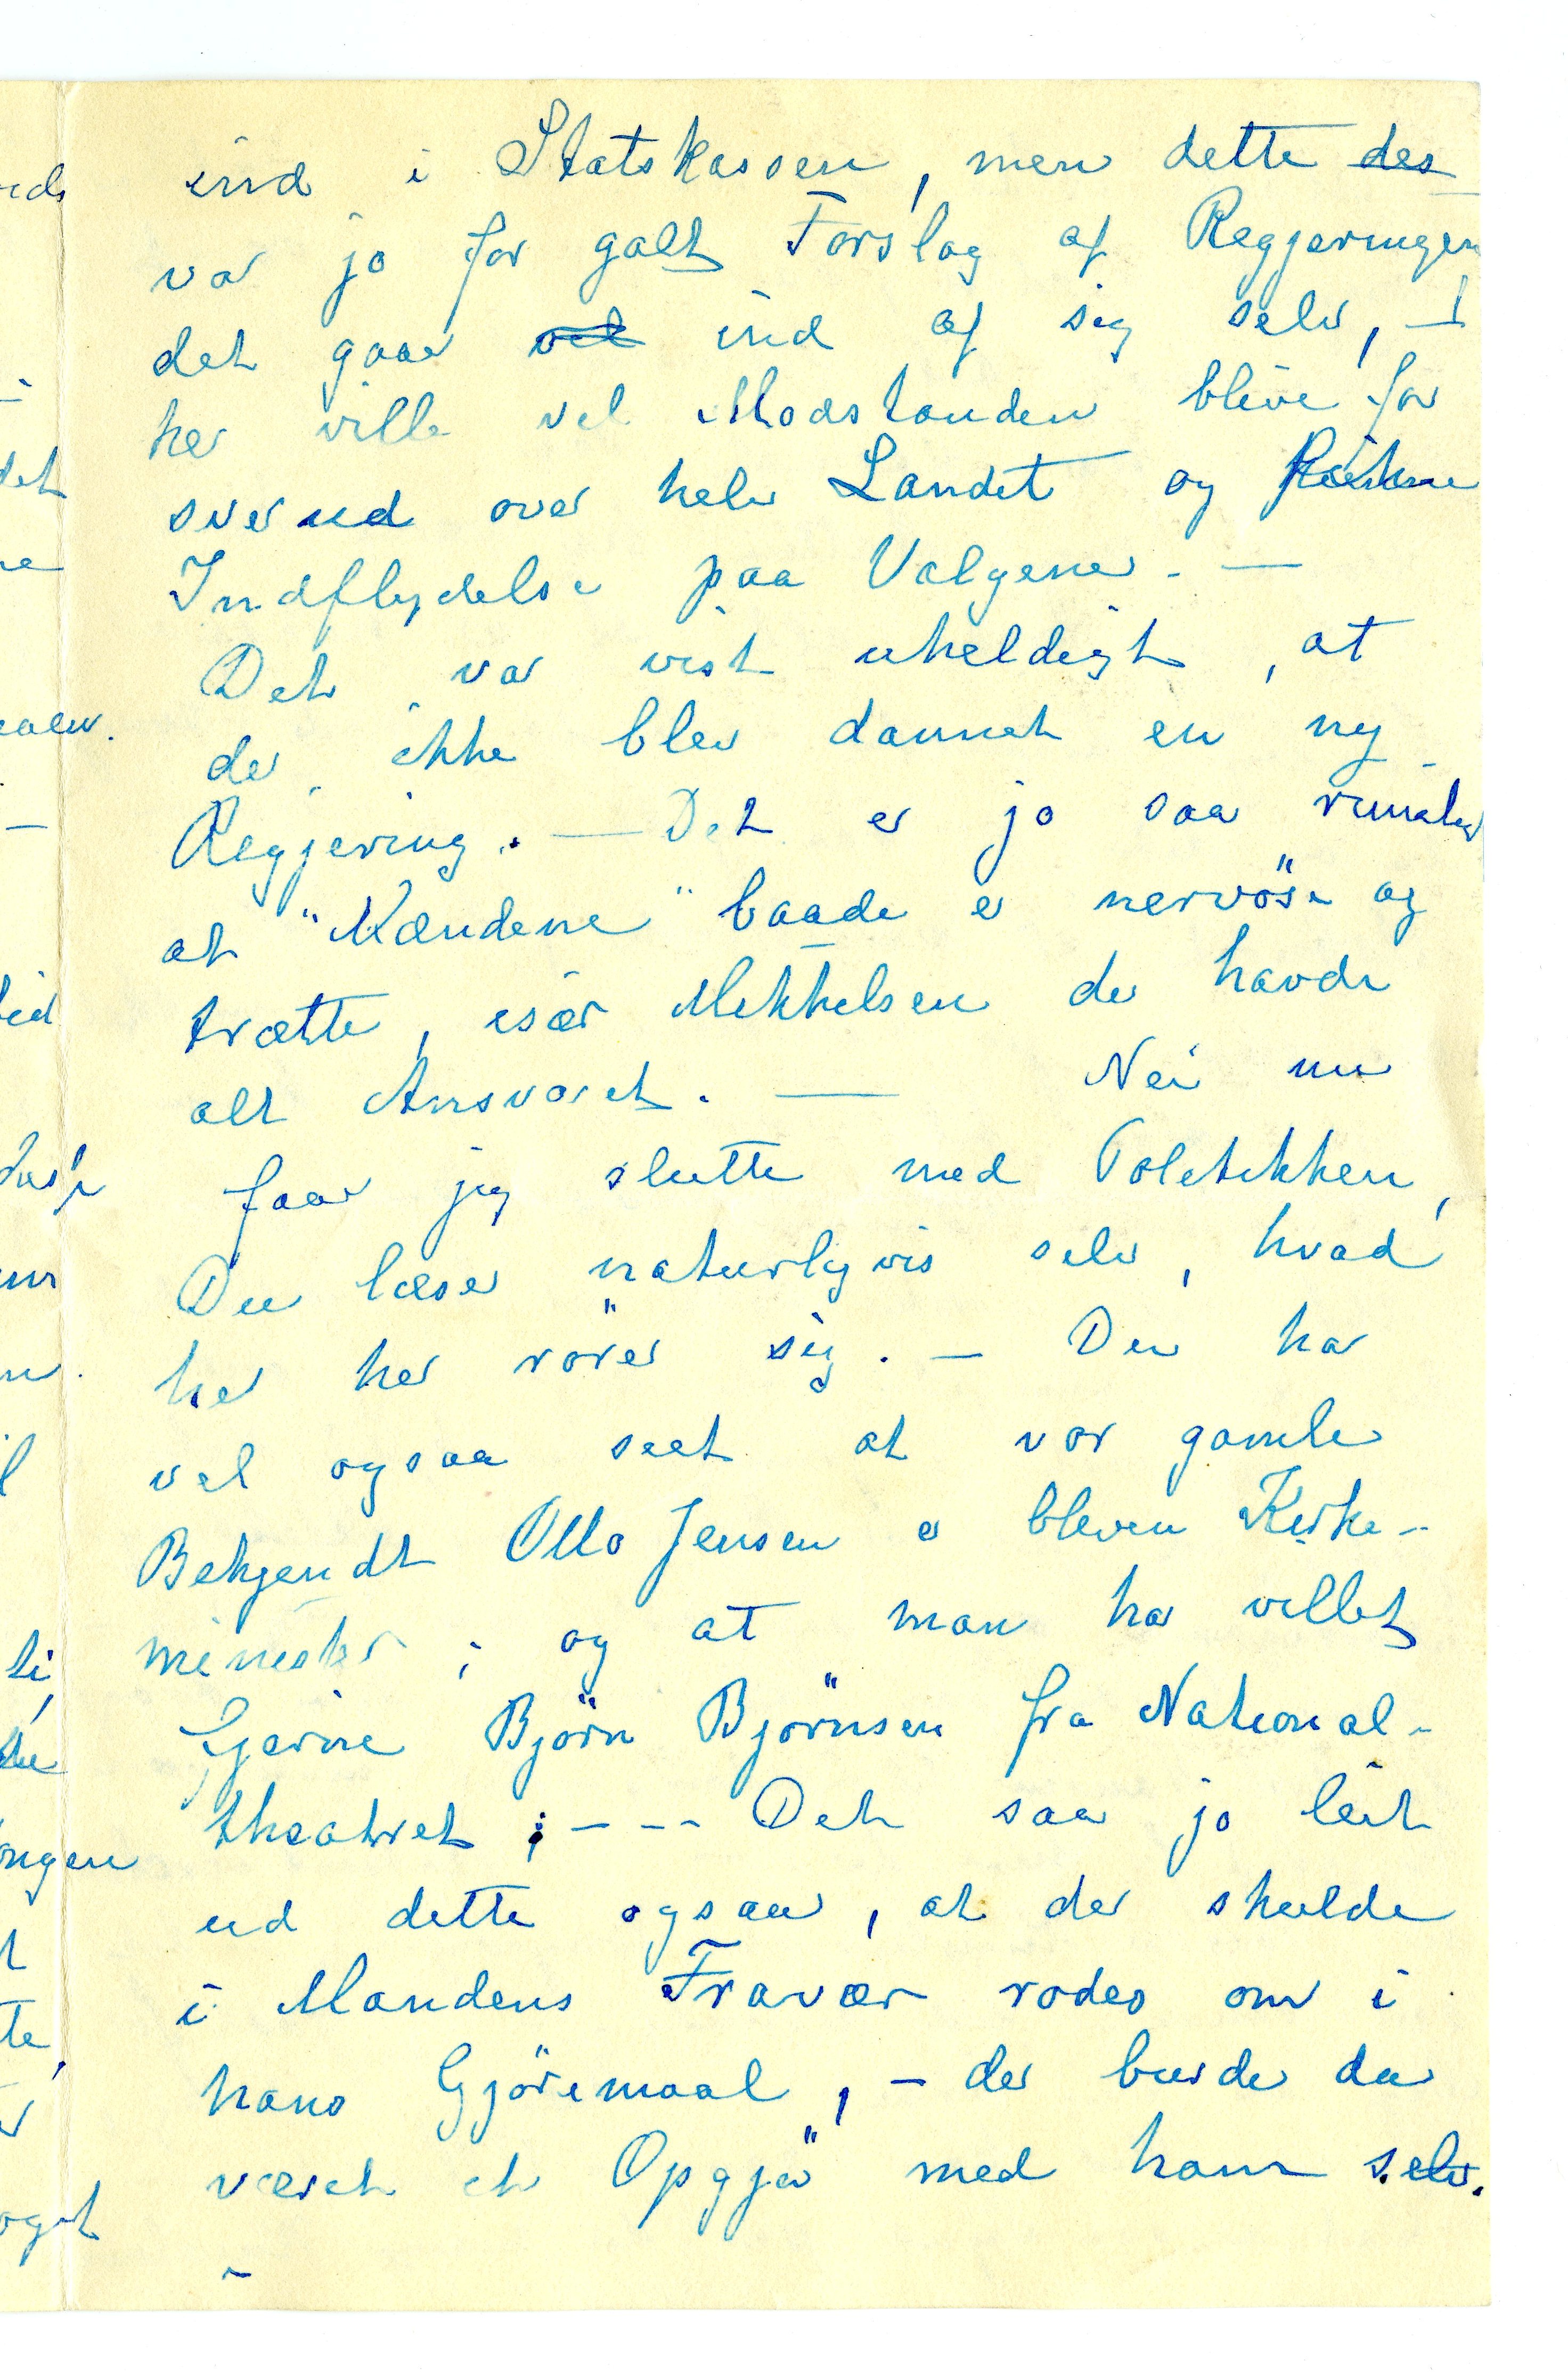 ind i Statskassen, men dette des
var jo for galt Forslag af Regjeringen
det gaar vel ind af sig selv, –
her ville vel Modstanden blive for
svær ud over hele Landet og
Indflydelse paa Valgene. —
Det var vist uheldigt, at
der ikke blev dannet en ny
Regjering. — Det er jo saa rimeligt
at "Mændene" baade er nervöse og
trætte, især Mikkelsen der havde
alt Ansvaret. — Nei nu
faar jeg slutte med Politikken,
Du læser naturligvis selv, hvad
her her rörer sig. — Du har
vel ogsaa seet at vor gamle
Bekjendt Otto Jensen er bleven Kirke-
minister; og at man har villet
fjerne Björn Björnsen fra National-
theatret; – – – Det saa jo leit
ud dette ogsaa, at der skulde
i Mandens Fravær rodes om i
hans Gjöremaal, – der burde da
været et Opgjör med ham selv.
–